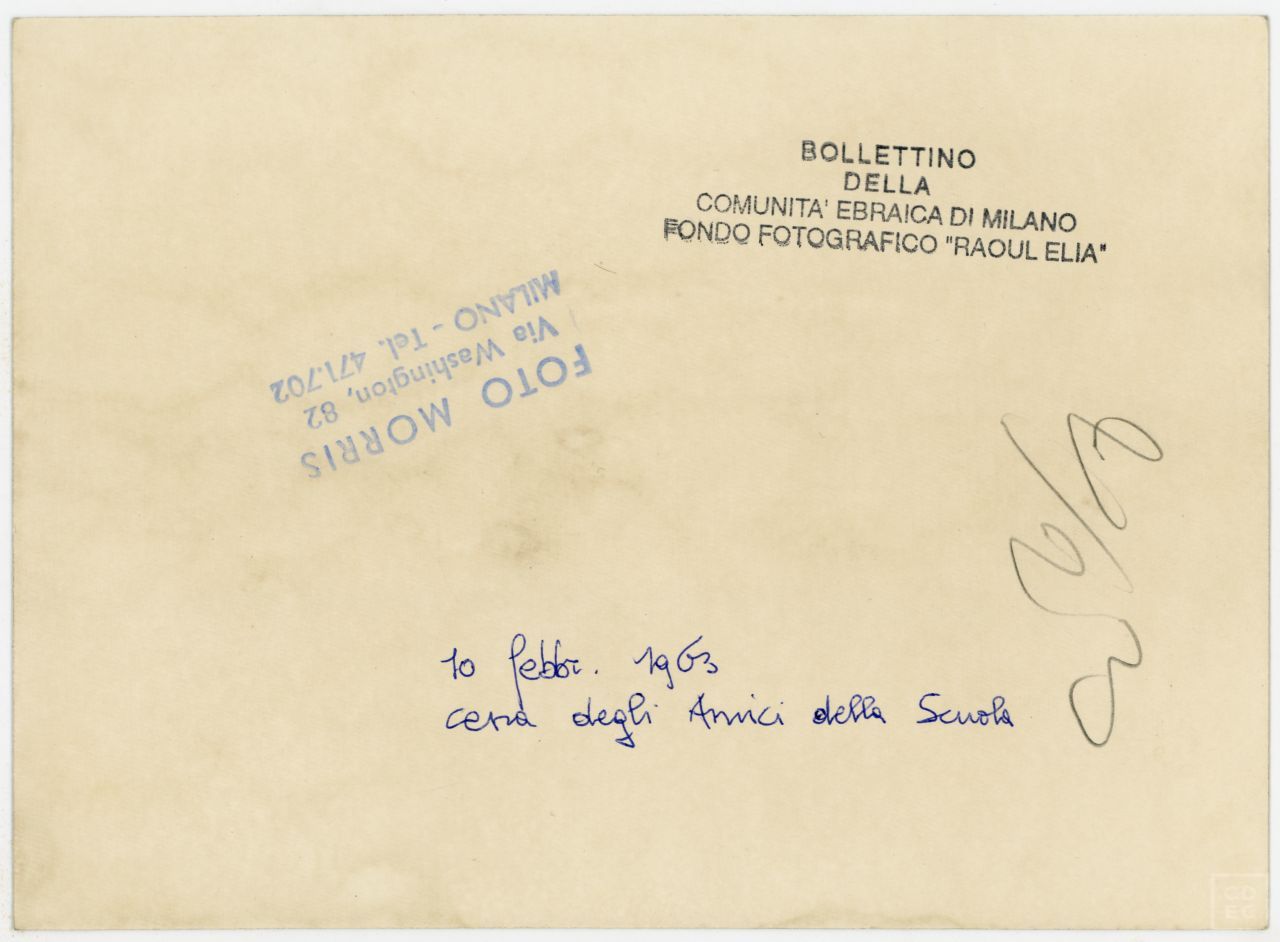 BOLLETTINO
DELLA
COMUNITA' EBRAICA DI MILANO
FONDO FOTOGRAFICO "RAOUL ELIA"
FOTO MORRIS
Via Washington, 82
MILANO - Tel. 471.702
10 febbr. 1963
cena degli Amici della Scuola
CD
EC